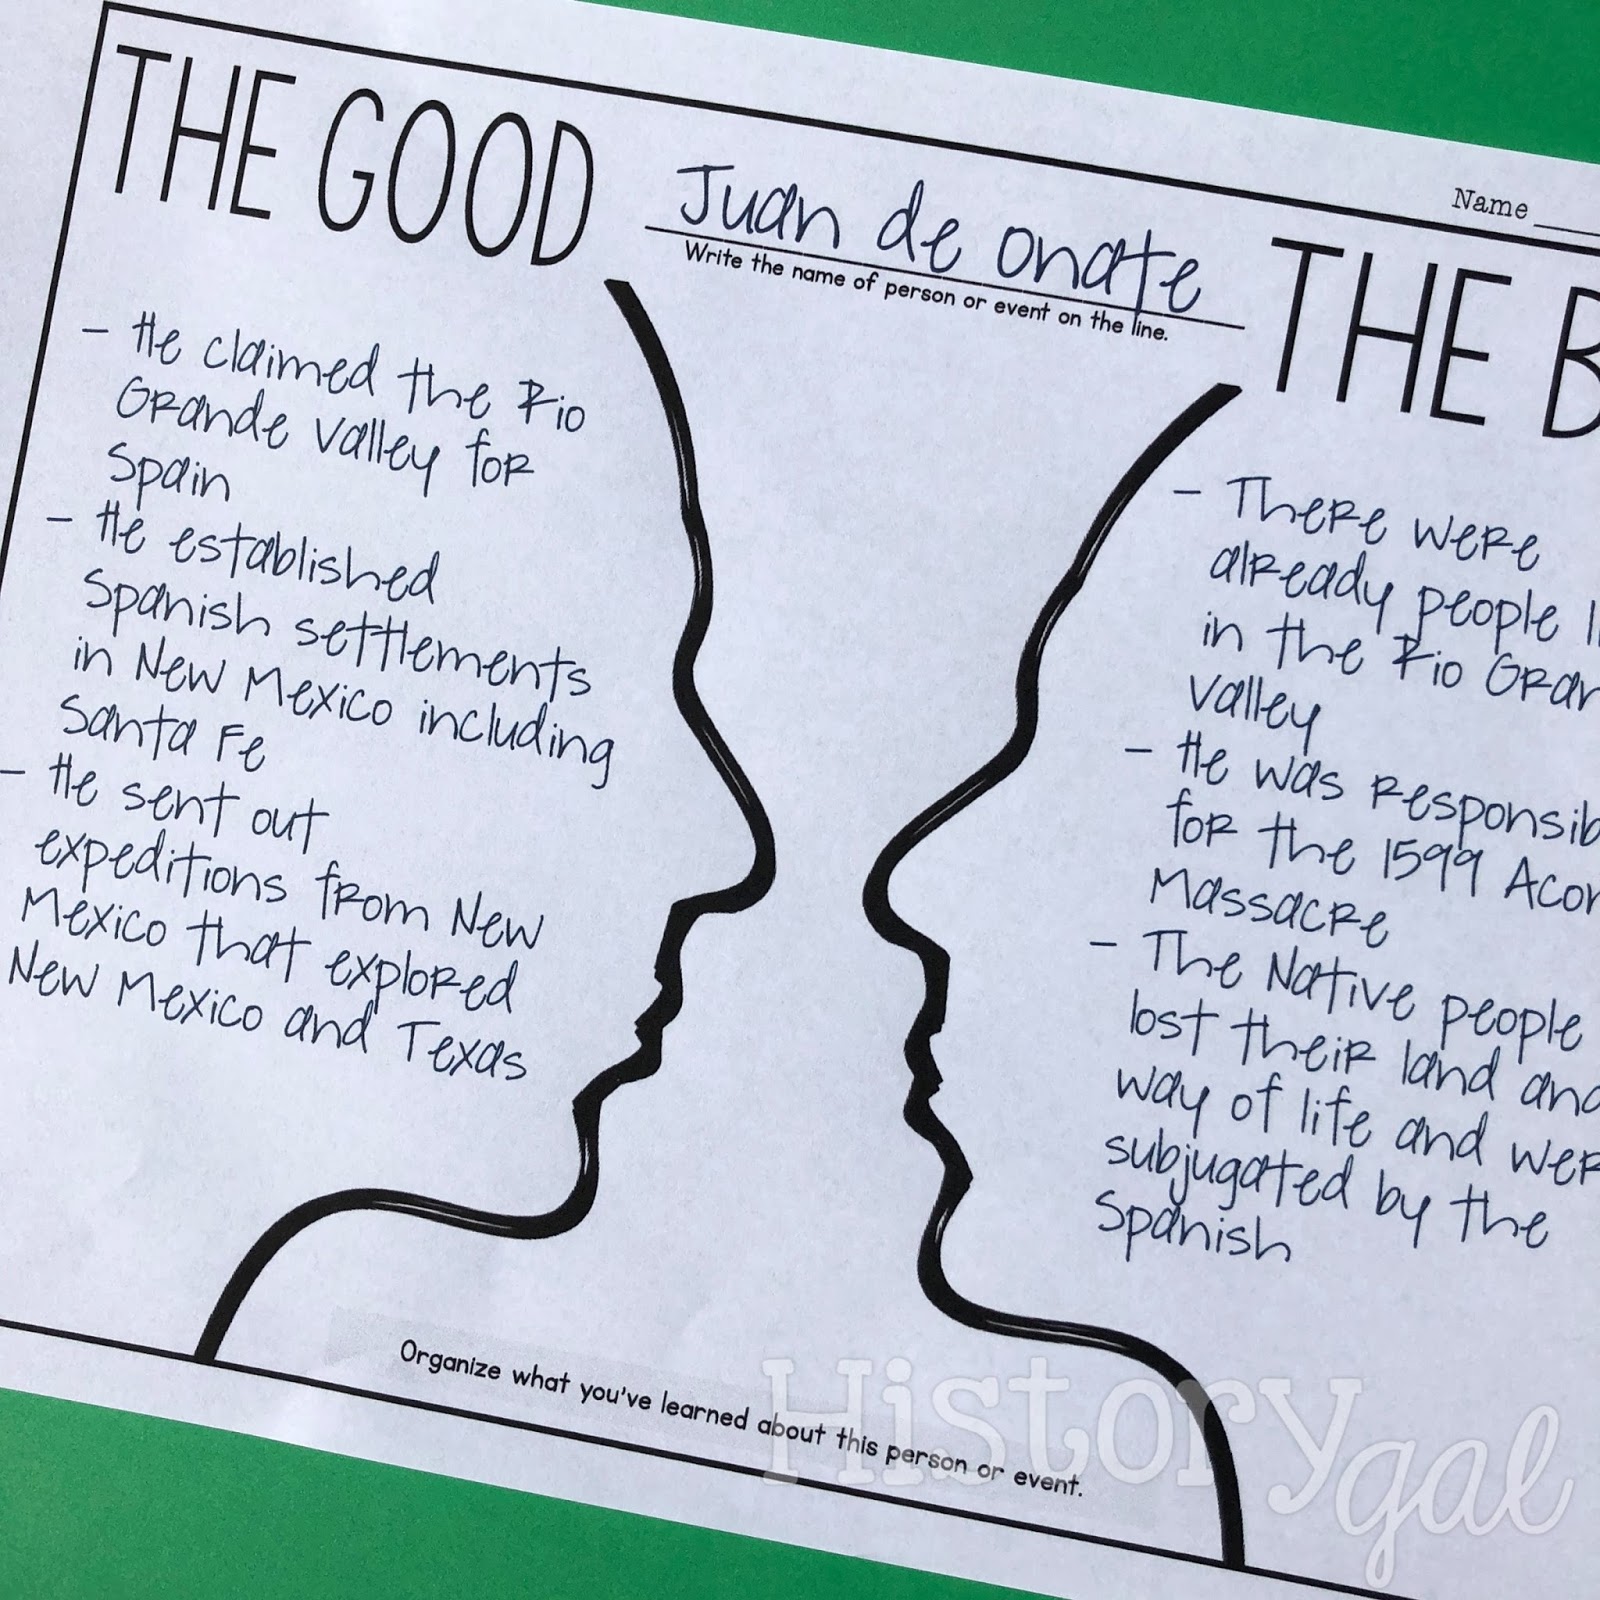 Name
THE GOOD
Juan de Onate
Write the name of person or event on the line.
- He claimed the Rio
Grande Valley for
Spain
- He established
Spanish settlements
in New Mexico including
Santa Fe
- He sent out
expeditions from New
Mexico that explored
New Mexico and Texas
THE B
- There were
already people li
in the Rio Gran
Valley
- He was responsib
for the 1599 Acom
Massacre
- The Native people
lost their land and
way of life and wer
subjugated by the
Spanish
Organize what you've learned about this person or event.
History
gal